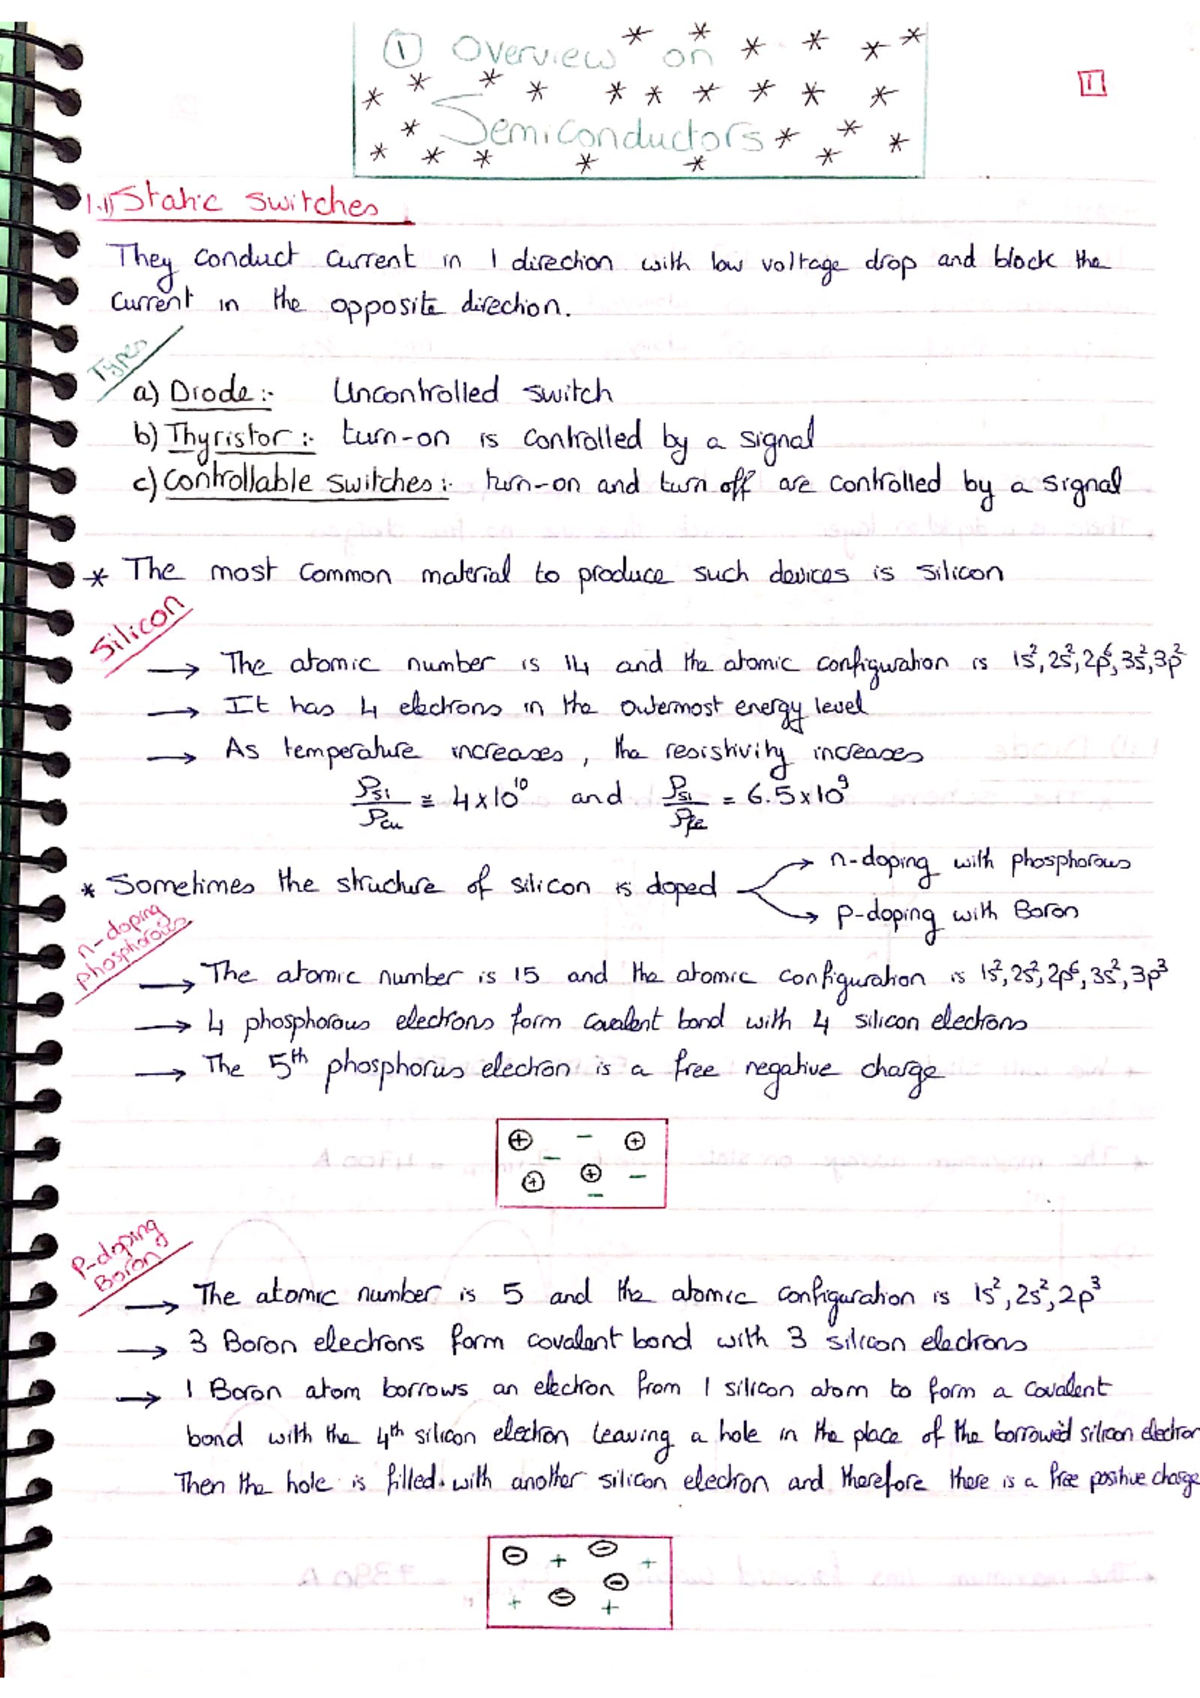 ① Overview on
Semiconductors
1
1.1) Static switches
They conduct current in 1 direction with low voltage drop and block the
current in the opposite direction.
Types
a) Diode :- Uncontrolled switch
b) Thyristor :- turn-on is controlled by a signal
c) Controllable switches :- turn-on and turn off are controlled by a signal
* The most common material to produce such devices is silicon
Silicon
→ The atomic number is 14 and the atomic configuration is 1s², 2s², 2p⁶, 3s², 3p²
→ It has 4 electrons in the outermost energy level
→ As temperature increases, the resistivity increases
ρsi/ρcu ≅ 4x10¹⁰ and ρsi/ρfe = 6.5x10⁹
* Sometimes the structure of silicon is doped
→ n-doping with phosphorous
→ p-doping with Boron
n-doping
phosphorous
→ The atomic number is 15 and the atomic configuration is 1s², 2s², 2p⁶, 3s², 3p³
→ 4 phosphorous electrons form covalent bond with 4 silicon electrons
→ The 5th phosphorus electron is a free negative charge
⊕ − ⊕
−
⊕ ⊕ −
−
P-doping
Boron
→ The atomic number is 5 and the atomic configuration is 1s², 2s², 2p³
→ 3 Boron electrons form covalent bond with 3 silicon electrons
→ 1 Boron atom borrows an electron from 1 silicon atom to form a covalent
bond with the 4th silicon electron leaving a hole in the place of the borrowed silicon electron
Then the hole is filled with another silicon electron and therefore there is a free positive charge
⊖ + ⊖ +
+ ⊖ ⊖
+